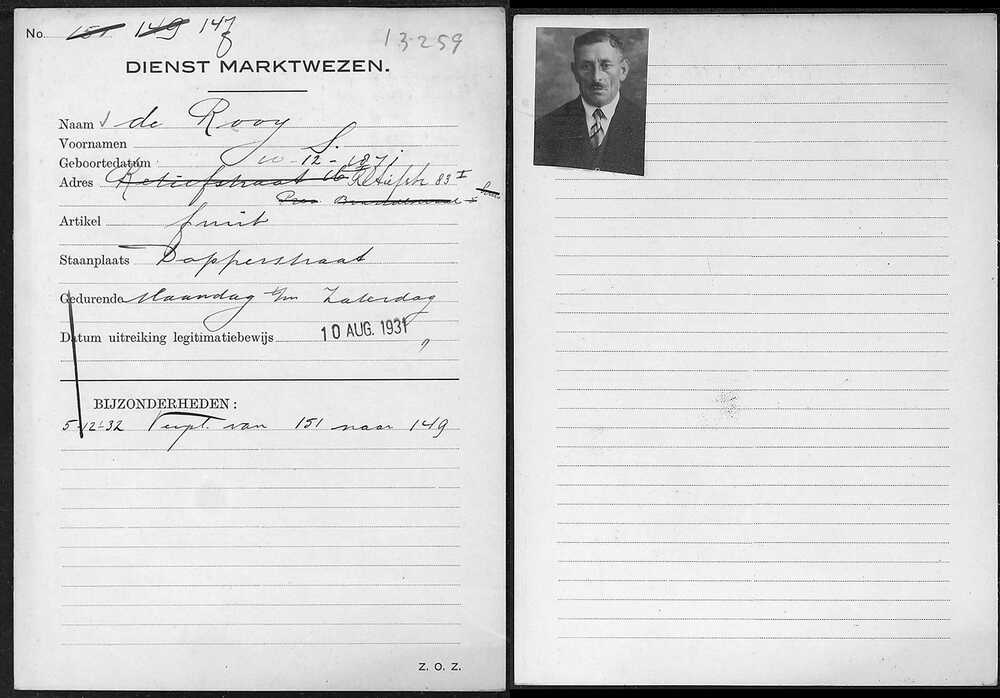 No. 151 149 147
13-259
DIENST MARKTWEZEN.
Naam de Rooy
Voornamen S.
Geboortedatum 10-12-1871
Adres Retiefstraat 83 I
Artikel fruit
Staanplaats Dapperstraat
Gedurende Maandag t/m Zaterdag
Datum uitreiking legitimatiebewijs 10 AUG. 1931 "
BIJZONDERHEDEN:
5-12-32 Verpl. van 151 naar 149
Z. O. Z.